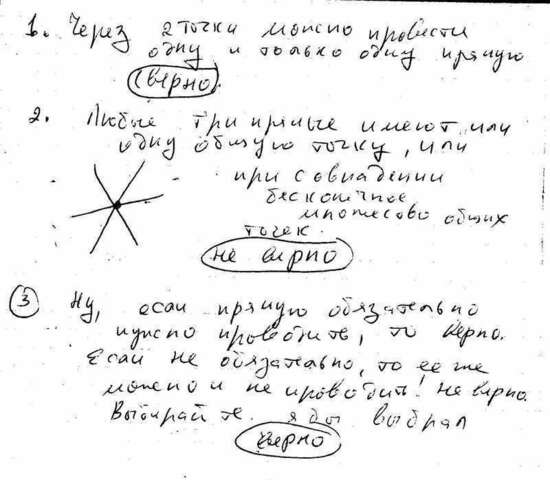 1. Через 2 точки можно провести
одну и только одну прямую
(верно)
2. Любые три прямые имеют или
одну общую точку, или
при совпадении
бесконечное
множесово общих
точек.
не верно
3 Ну, если прямую обязательно
нужно проводить, то верно.
Если не обязательно, то ее же
можно и не проводить! Не верно.
Выбирайте. я бы выбрал
верно